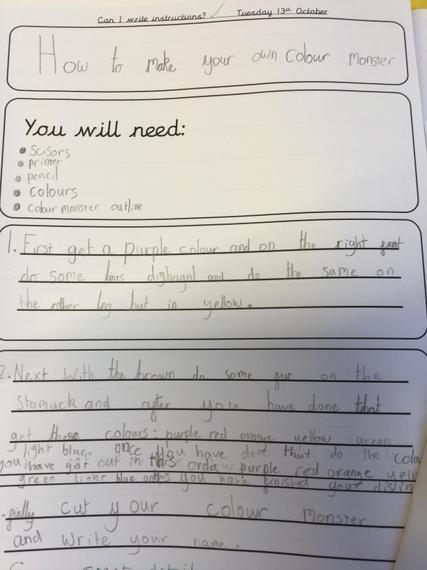 Can I write instructions? Tuesday 13th October
How to make your own Colour Monster
You will need:
Scisors
printer
pencil
colours
colour monster outline
1. First get a purple colour and on the right
do some lines and do the same on
the other leg but in yellow.
2. Next With the brown do some fur on the
Stomuck and after you have done that
get these colours: purple red orange yellow green
light blue. once you have dont that do the colou
you have got out in this order purple red orange yelw
green light blue you have finished your
finlly cut your colour monster
and write your name.